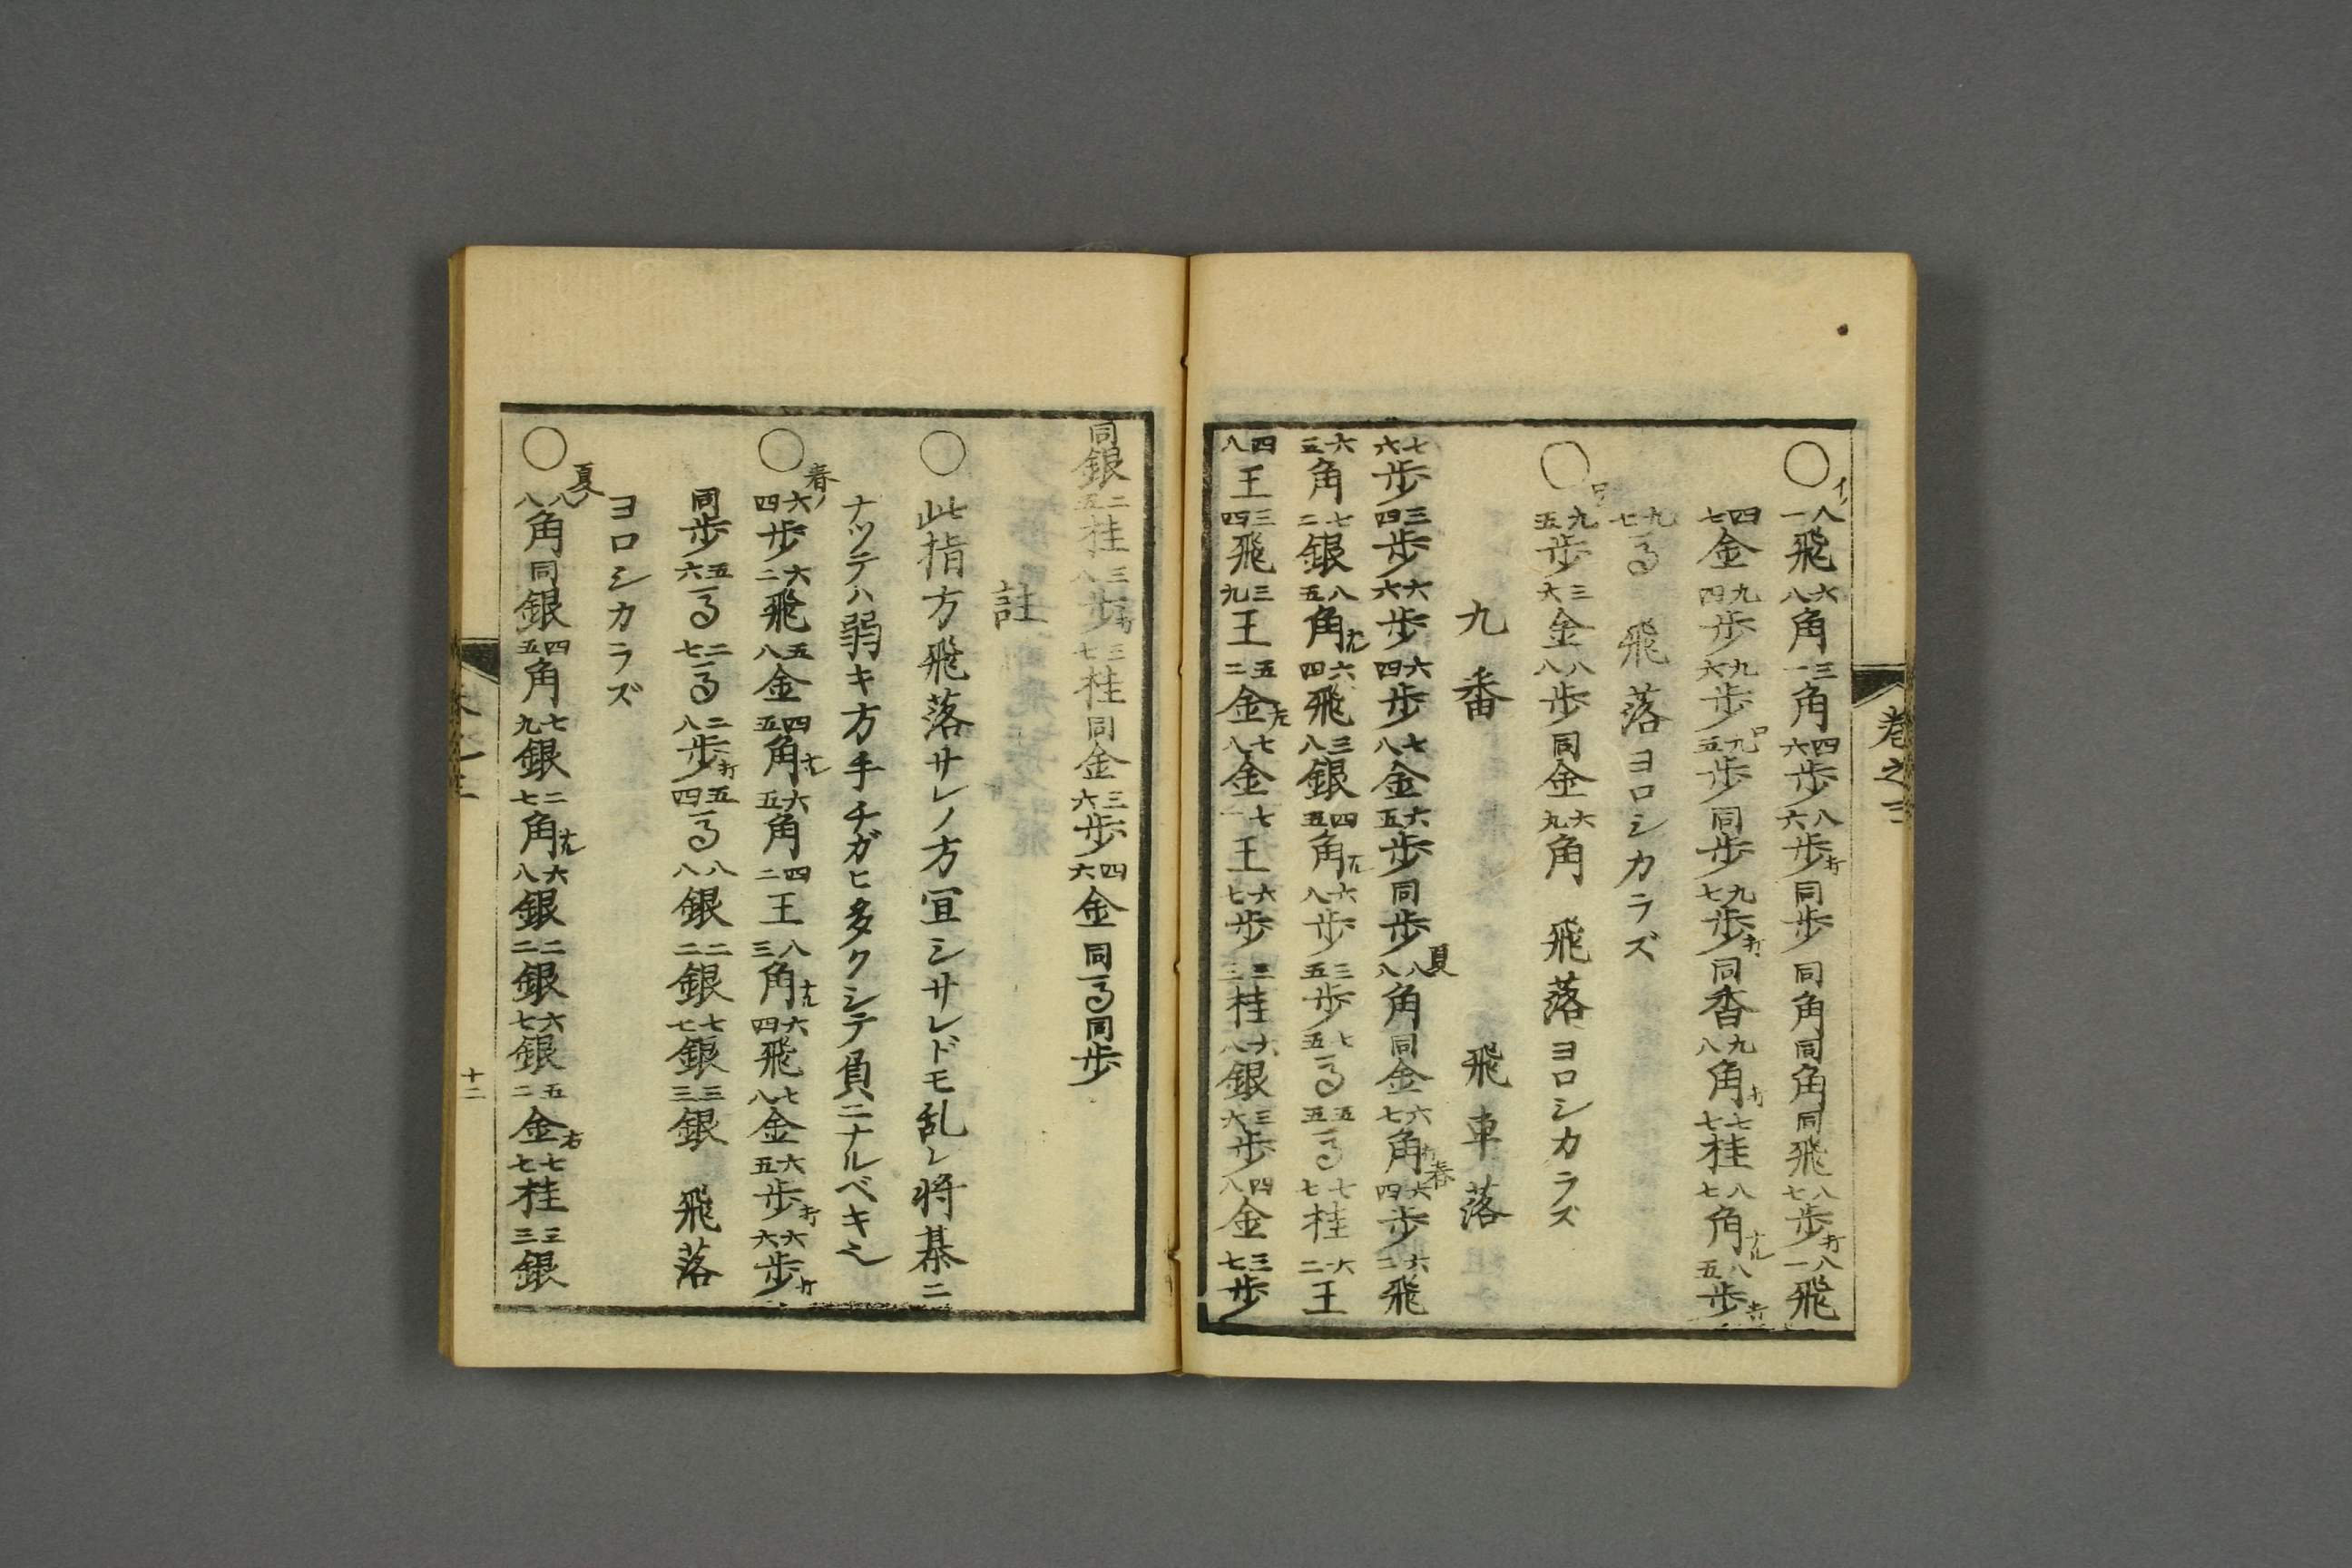 巻之三
○イノ八一飛六八角三一角四六歩八六歩打同歩同角同角同飛八七歩打八一飛
四七金九四歩九六歩ロ九五歩同歩九七歩打同香九八角打七七桂八七角ナル八五歩打
九七馬 飛落ヨロシカラズ
○ロノ九五歩三六金八八歩同金六九角 飛落ヨロシカラズ
九番 飛車落
七六歩三四歩六六歩六四歩七八金六五歩同歩夏八八角同金六七角打春六四歩六二飛
六三角七二銀八五角ナル六四飛三八銀四五角ナル六八歩三五歩七五馬五五馬七七桂六二王
四八王三四飛三九王五二金左七八金七一王六七歩三三桂六八銀三六歩四八金三七歩
同銀二五桂三八歩打三七桂同金三六歩四六金同馬同歩
註
○此指方飛落サレノ方宜シサレドモ乱レ将棊ニ
ナツテハ弱キ方手チガヒ多クシテ負ニナルベキ也
○春ノ六四歩六二飛五八金四五角ナル六五角四二王八三角ナル六四飛七八金六五歩打六六歩打
同歩五六馬二七馬二八歩打五四馬八八銀二二銀七七銀三三銀 飛落
ヨロシカラズ
○夏ノ八八角同銀四五角七九銀二七角ナル六八銀二二銀六七銀五二金右七七桂三三銀
十二